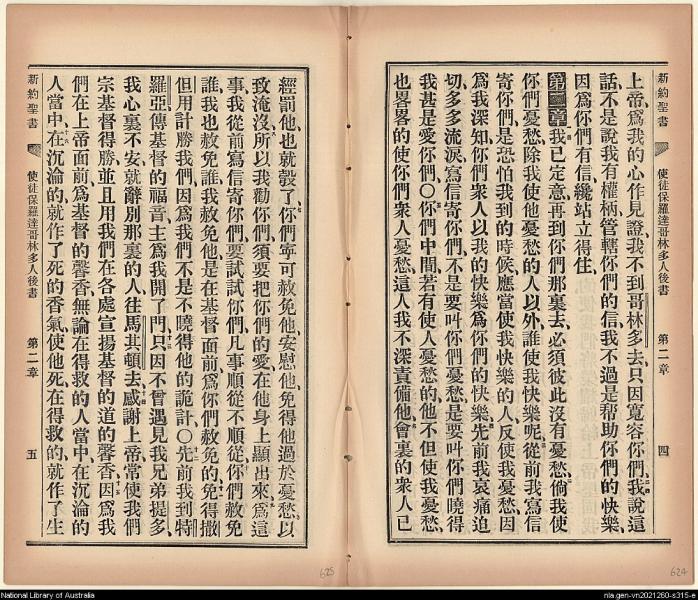 新約聖書 使徒保羅達哥林多人後書 第二章 四
上帝、爲我的心作見證、我不到哥林多去、只因寬容你們、我說這
話、不是說我有權柄管轄你們的信、我不過是帮助你們的快樂、
因爲你們有信、纔站立得住、
第二章 我已定意、再到你們那裏去、必須彼此沒有憂愁、倘我使
你們憂愁、除我使他憂愁的人以外、誰使我快樂呢、從前我寫信
寄你們、是恐怕我到的時候、應當使我快樂的人、反使我憂愁、因
爲我深知你們衆人、以我的快樂爲你們的快樂、先前我哀痛迫
切、多多流淚、寫信寄你們、不是要叫你們憂愁、是要叫你們曉得
我甚是愛你們〇你們中間若有使人憂愁的、他不但使我憂愁、
也畧畧的使你們衆人憂愁、這人我不深責備他、會裏的衆人已
新約聖書 使徒保羅達哥林多人後書 第二章 五
經罰他、也就彀了、你們寧可赦免他、安慰他、免得他過於憂愁、以
致淹沒、所以我勸你們、須要把你們的愛、在他身上顯出來、爲這
事我從前寫信寄你們、要試試你們、凡事順從不順從、你們赦免
誰、我也赦免誰、我赦免他、是在基督面前、爲你們赦免的、免得撒
但用計勝我們、因爲我們不是不曉得他的詭計〇先前我到特
羅亞傳基督的福音、主爲我開了門、只因不曾遇見我兄弟提多、
我心裏不安、就辭別那裏的人、往馬其頓去、感謝上帝、常使我們
宗基督得勝、並且用我們在各處宣揚基督的道的馨香、因爲我
們在上帝面前、爲基督的馨香、無論在得救的人當中、在沉淪的
人當中、在沉淪的、就作了死的香氣使他死、在得救的、就作了生
625
624
National Library of Australia
nla.gen-vn2021260-s315-e